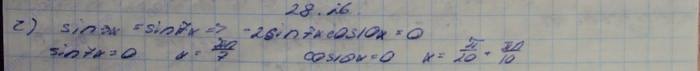 28.26
г) sin3x = sin7x => -2sin7xcos10x = 0
sin7x=0 x = πn/7 cos10x=0 x = π/20 + πn/10